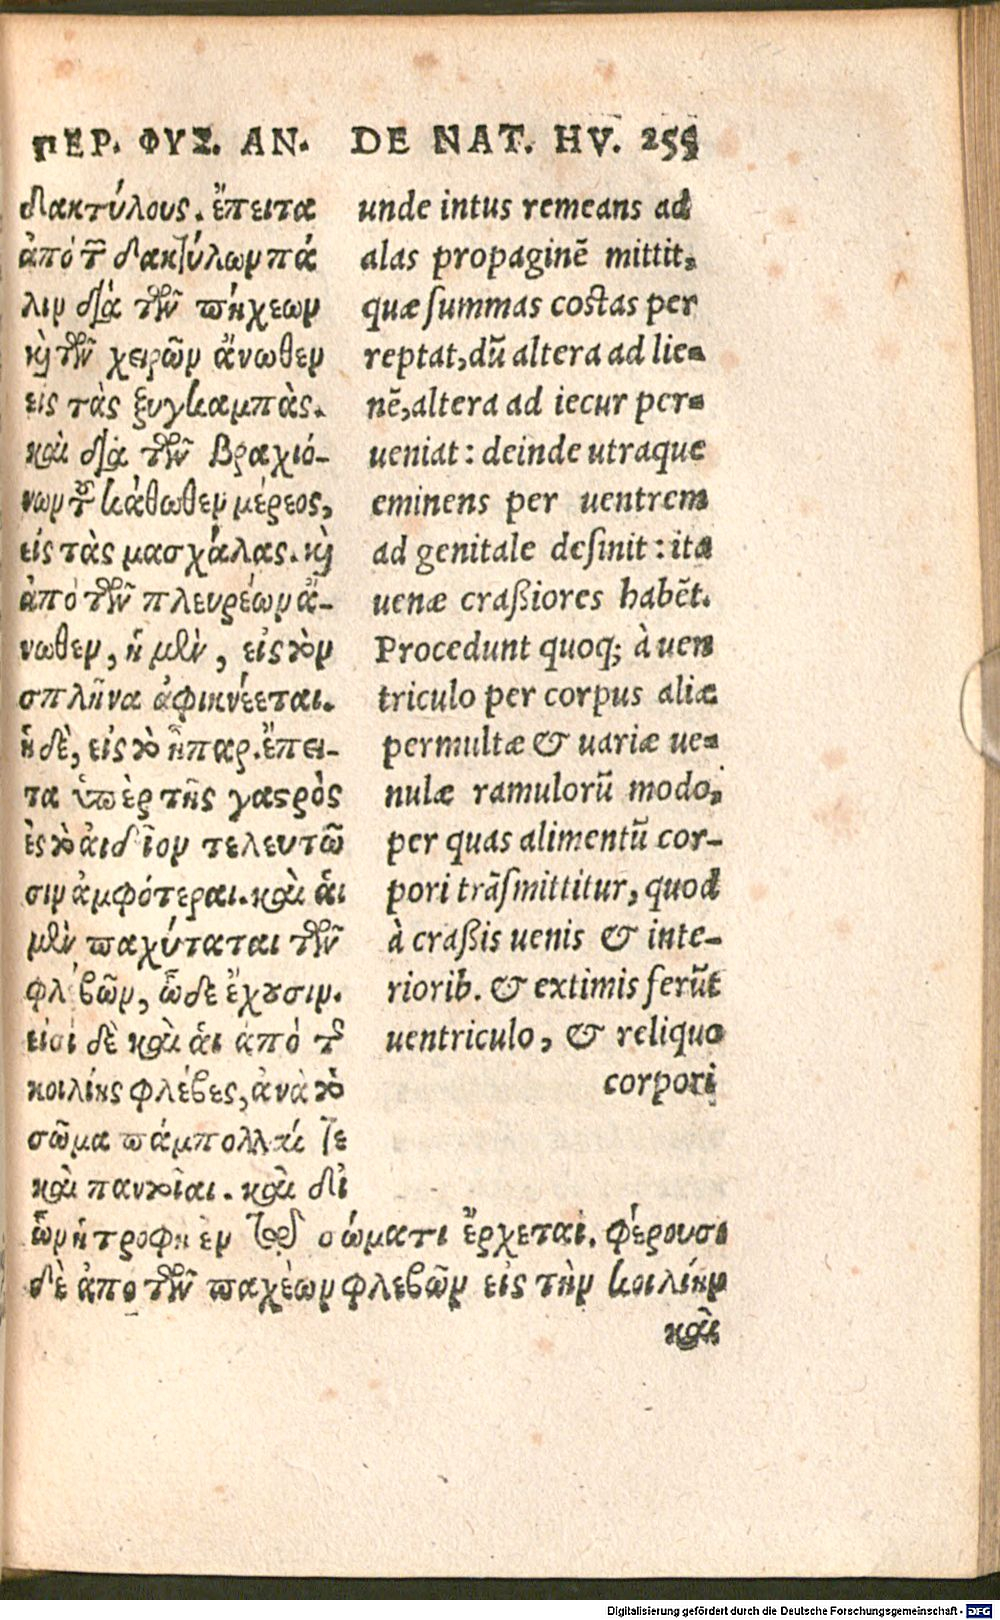 ΠΕΡ. ΦΥΣ. ΑΝ. DE NAT. HV. 255
δακτύλους. ἔπειτα
ἀπὸ τ̃ δακτύλων πά
λιν διὰ τῶν πήχεων
κ̀ τῶν χειρῶν ἄνωθεν
εἰς τὰς ξυγκαμπὰς.
καὶ διὰ τῶν βραχιό-
νων τ̃ κάθωθεν μέρεος,
εἰς τὰς μασχάλας. κ̀
ἀπὸ τῶν πλευρέων ἄ-
νωθεν, ἡ μὲν, εἰς τὸν
σπλῆνα ἀφικνέεται.
ἡ δὲ, εἰς τὸ ἧπαρ. ἔπει-
τα ὑπὲρ τῆς γαστρὸς
ἐς τὸ ἀιδοῖον τελευτῶ
σιν ἀμφότεραι. καὶ ἁι
μὲν παχύταται τῶν
φλεβῶν, ὧδε ἔχουσιν.
εἰσὶ δὲ καὶ ἁι ἀπὸ τ̃
κοιλίης φλέβες, ἀνὰ τὸ
σῶμα πάμπολλαί τε
καὶ παντοῖαι. καὶ δἰ
ὧν ἡ τροφὴ ἐν τῷ σώματι ἔρχεται. φέρουσι
δὲ ἀπο τῶν παχέων φλεβῶν εἰς τὴν κοιλίην
καὶ
unde intus remeans ad
alas propaginẽ mittit,
quæ summas costas per
reptat, dũ altera ad lie-
nẽ, altera ad iecur per-
ueniat: deinde utraque
eminens per uentrem
ad genitale desinit: ita
uenæ craßiores habẽt.
Procedunt quoq; à uen
triculo per corpus aliæ
permultæ & uariæ ue-
nulæ ramulorũ modo,
per quas alimentũ cor-
pori trãsmittitur, quod
à craßis uenis & inte-
riorib. & extimis ferũt
uentriculo, & reliquo
corpori
Digitalisierung gefördert durch die Deutsche Forschungsgemeinschaft - DFG